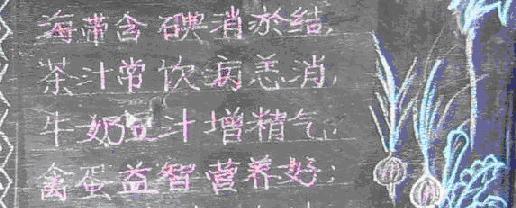 海带含碘消於结,
茶汁常饮病恙消,
牛奶豆汁增精气;
禽蛋益智营养好;